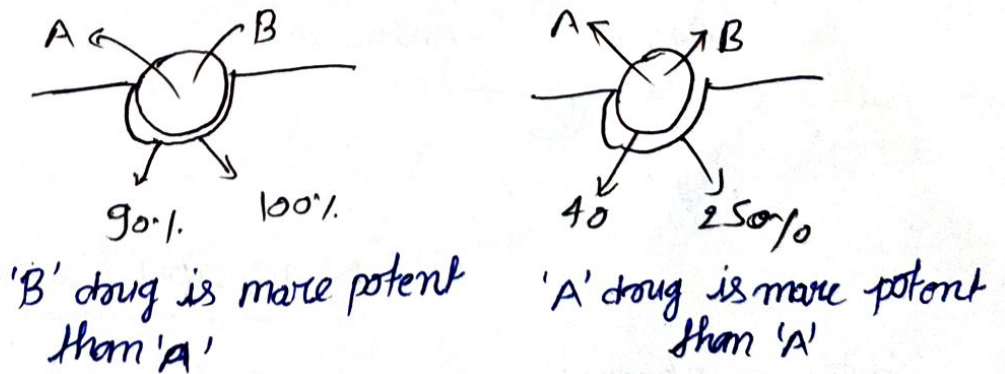 A B
90% 100%
'B' drug is more potent
than 'A'
A B
40 250%
'A' drug is more potont
than 'A'